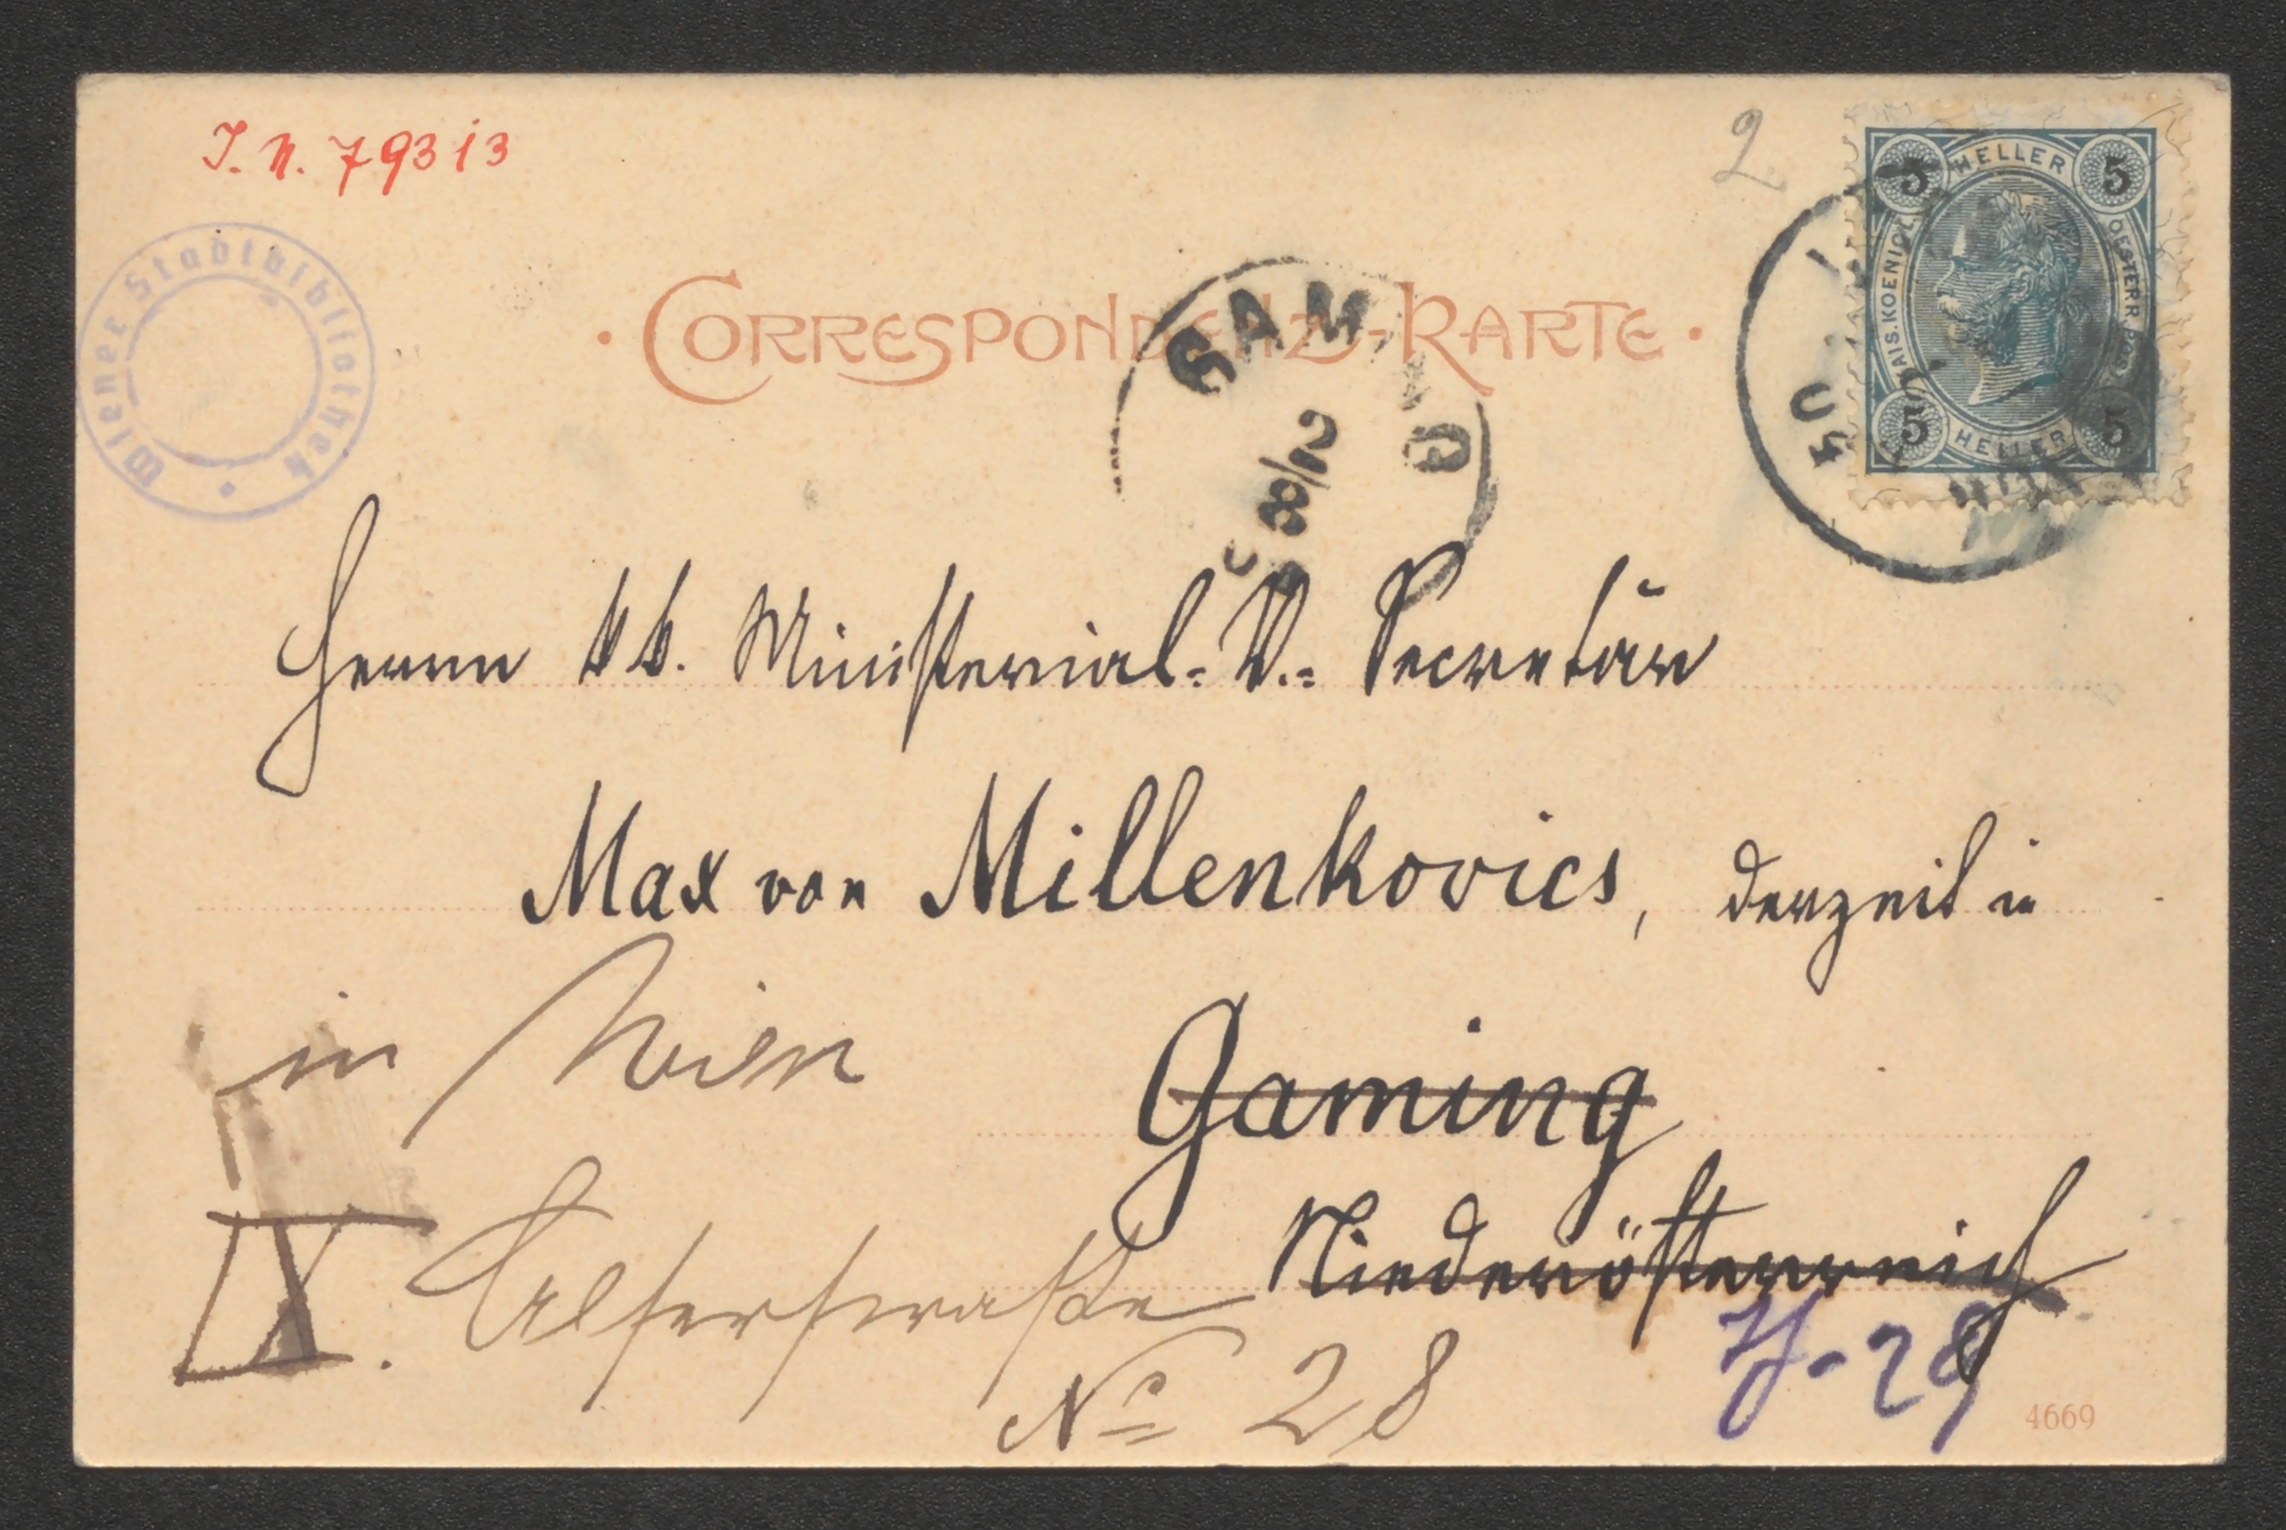 I. N. 79313
2
Wiener Stadtbibliothek
5 HELLER 5
KAIS. KOENIGL.
OESTERR. POST
5 HELLER 5
CORRESPONDENZ-KARTE
GAMING
8/2
Herrn kk. Ministerial-V.-Secretär
Max von Millenkovics, derzeit in
in Wien
Gaming
Niederösterreich
IX. Alserstraße
No 28
4669